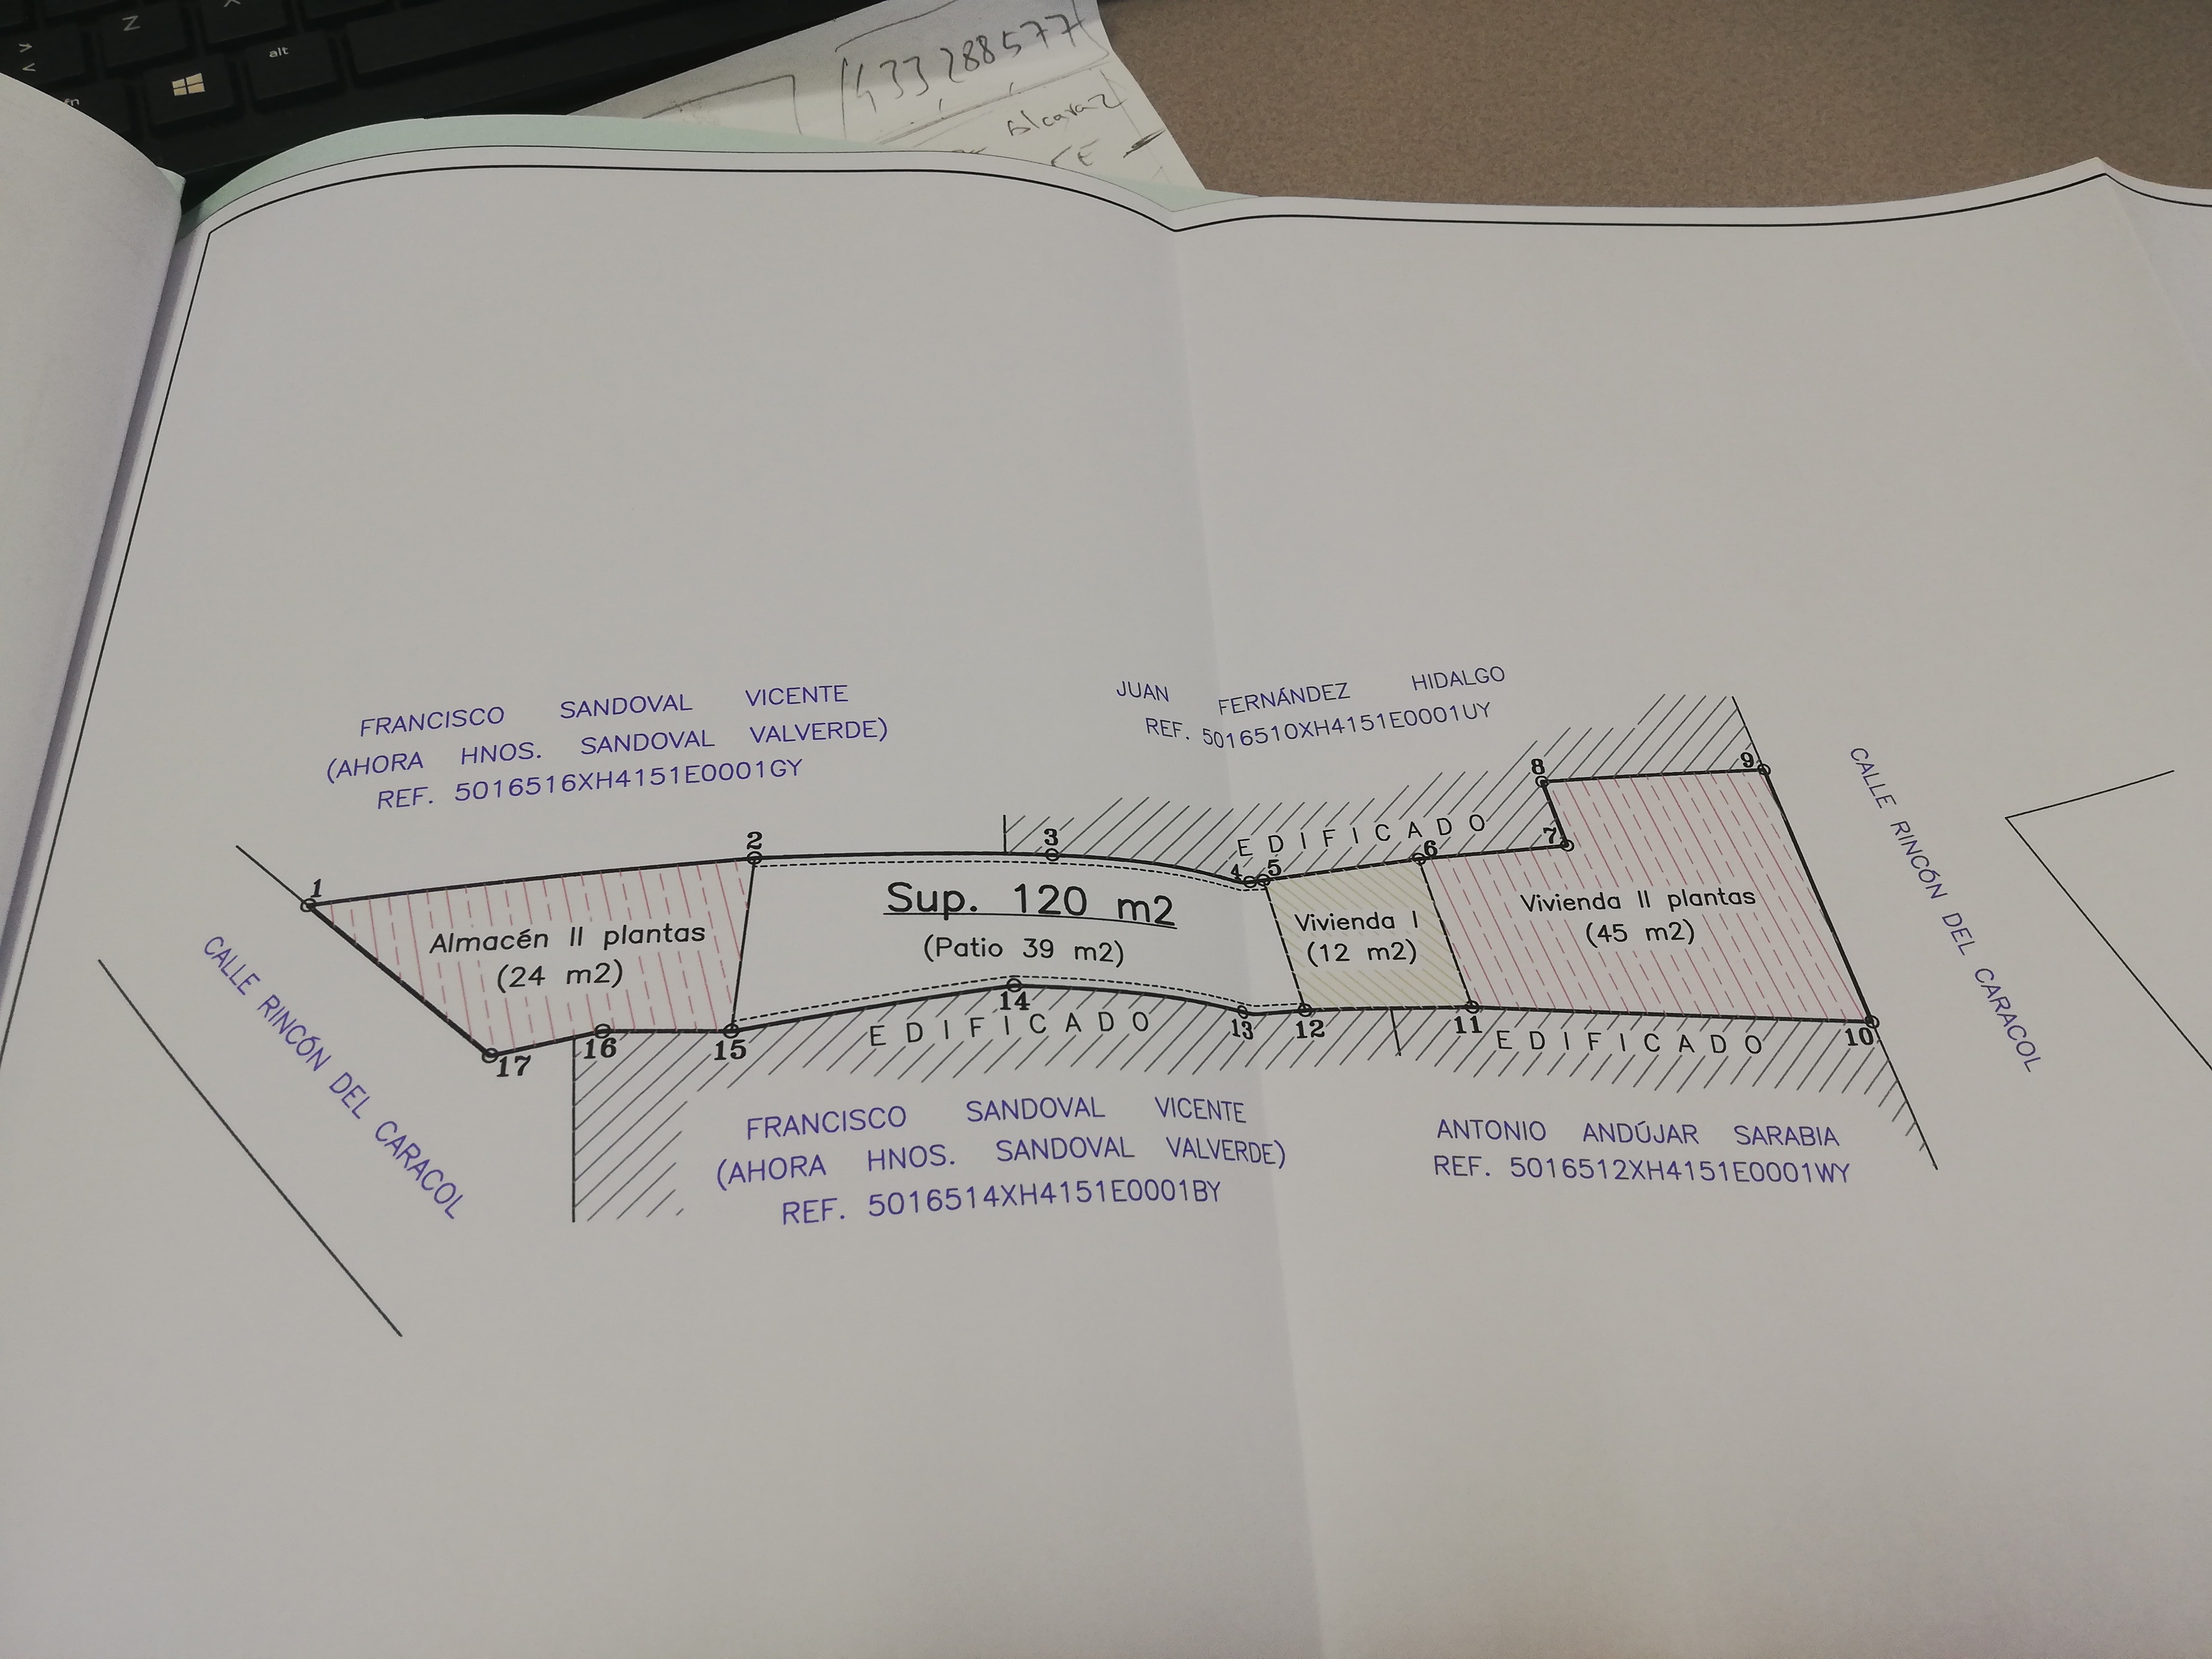 Z
alt
fn
433288577
Alcaraz
CE
FRANCISCO SANDOVAL VICENTE
(AHORA HNOS. SANDOVAL VALVERDE)
REF. 5016516XH4151E0001GY
JUAN FERNÁNDEZ HIDALGO
REF. 5016510XH4151E0001UY
CALLE RINCÓN DEL CARACOL
EDIFICADO
1
2
3
4
5
6
7
8
9
Almacén II plantas
(24 m2)
Sup. 120 m2
(Patio 39 m2)
Vivienda I
(12 m2)
Vivienda II plantas
(45 m2)
CALLE RINCÓN DEL CARACOL
17
16
15
14
13
12
11
10
EDIFICADO
EDIFICADO
FRANCISCO SANDOVAL VICENTE
(AHORA HNOS. SANDOVAL VALVERDE)
REF. 5016514XH4151E0001BY
ANTONIO ANDÚJAR SARABIA
REF. 5016512XH4151E0001WY